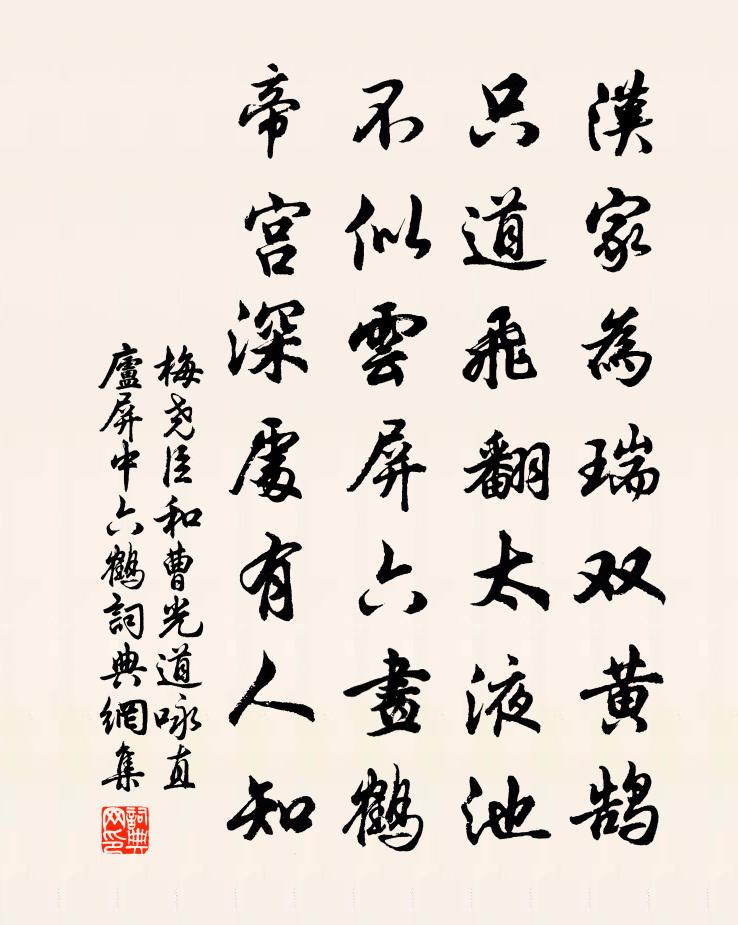 漢家為瑞双黄鹄
只道飛翻太液池
不似雲屏六畫鶴
帝宫深處有人知
梅尧臣和曹光道咏直
廬屏中六鶴詞典網集
詞典
网印